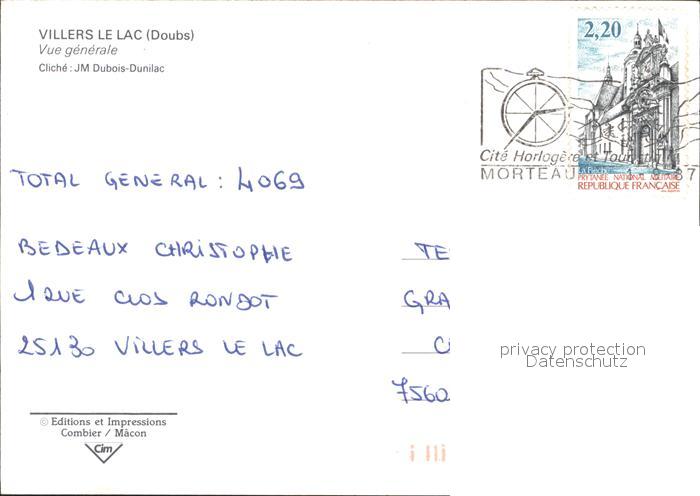 VILLERS LE LAC (Doubs)
Vue générale
Cliché : JM Dubois-Dunilac
2,20
Cité Horlogère et
MORTEAU
LA FLECHE
PRYTANEE NATIONAL MILITAIRE
REPUBLIQUE FRANÇAISE
87
TOTAL GENERAL : 4069
BEDEAUX CHRISTOPHE
1 RUE CLOS RONDOT
25130 VILLERS LE LAC
TE
GRA
C
7560
privacy protection
Datenschutz
© Editions et Impressions
Combier / Mâcon
Cim